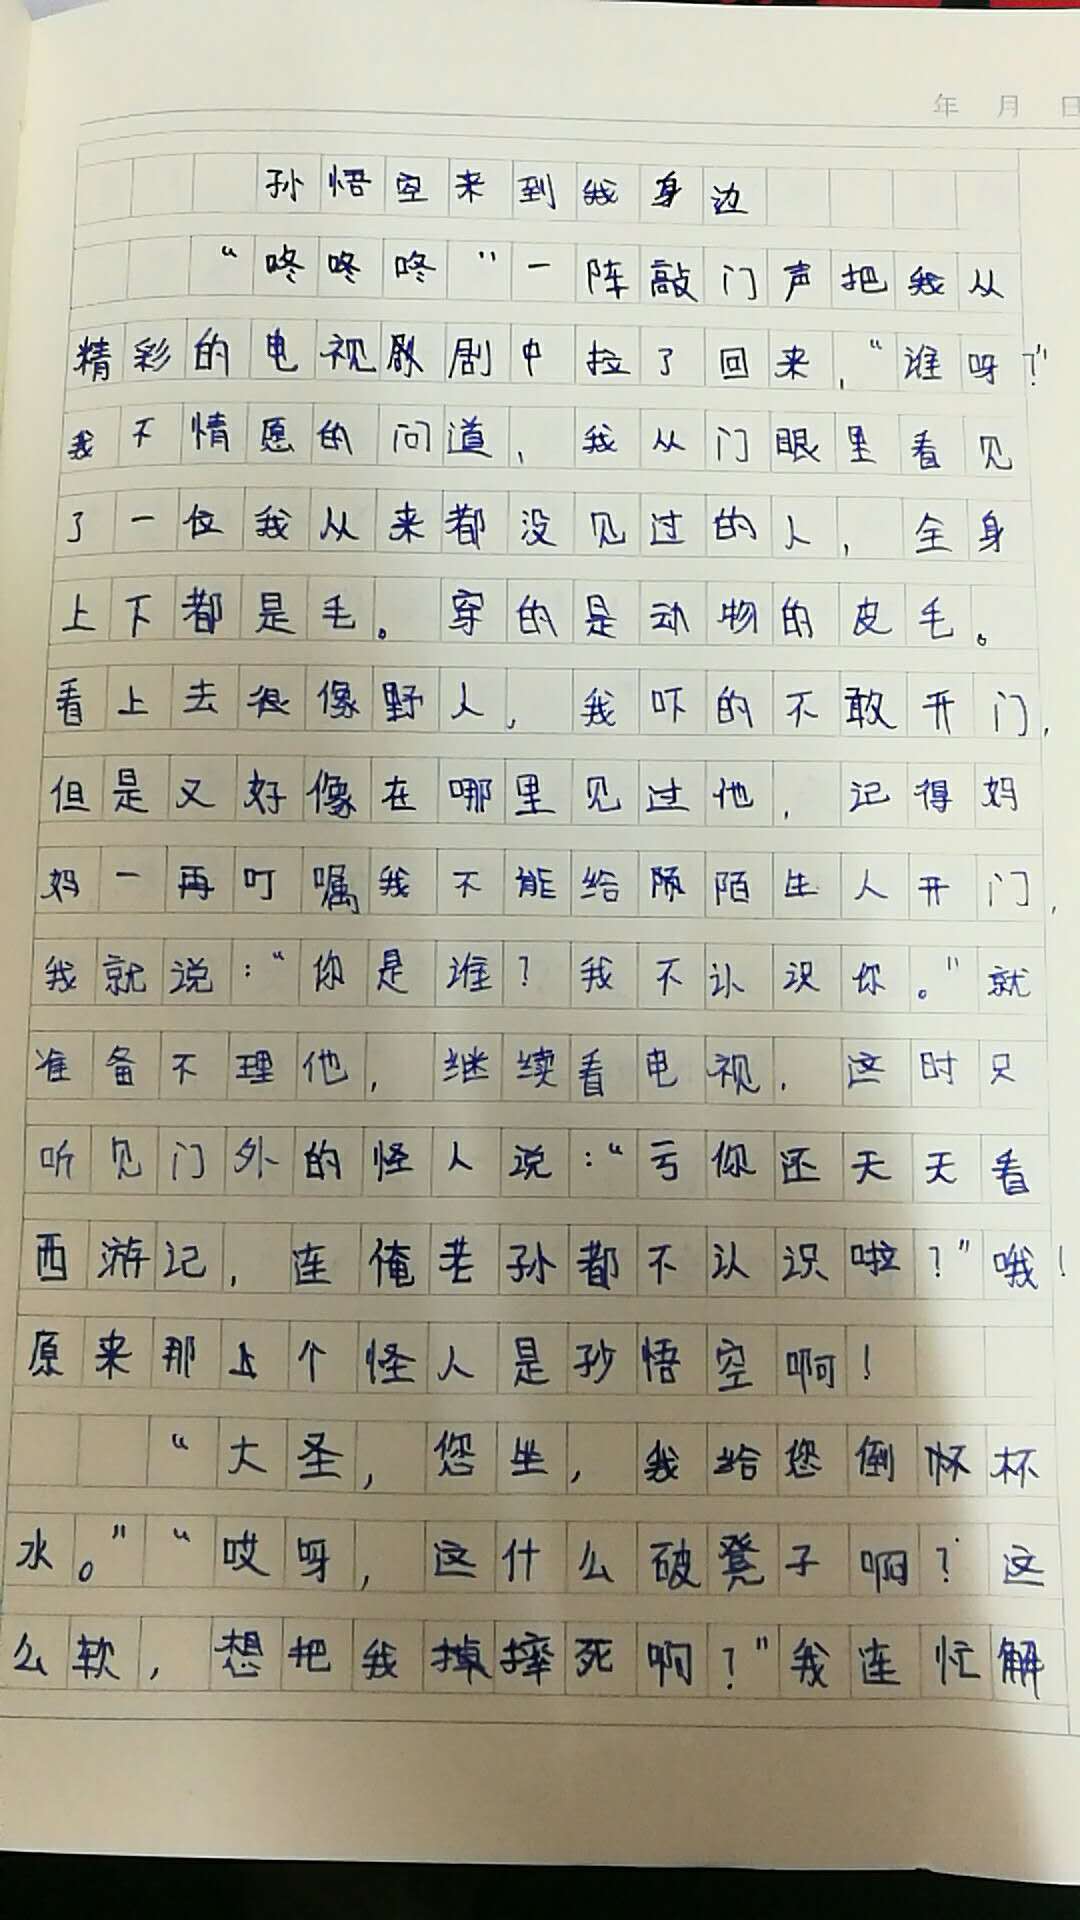 年 月 日
孙悟空来到我身边
“咚咚咚”一阵敲门声把我从
精彩的电视剧中拉了回来，“谁呀？”
我不情愿的问道，我从门眼里看见
了一位我从来都没见过的人，全身
上下都是毛。穿的是动物的皮毛。
看上去很像野人，我吓的不敢开门，
但是又好像在哪里见过他，记得妈
妈一再叮嘱我不能给陌生人开门，
我就说：“你是谁？我不认识你。”就
准备不理他，继续看电视，这时只
听见门外的怪人说：“亏你还天天看
西游记，连俺老孙都不认识啦？”哦！
原来那个怪人是孙悟空啊！
“大圣，您坐，我给您倒杯
水。”“哎呀，这什么破凳子啊？这
么软，想把我摔死啊？”我连忙解